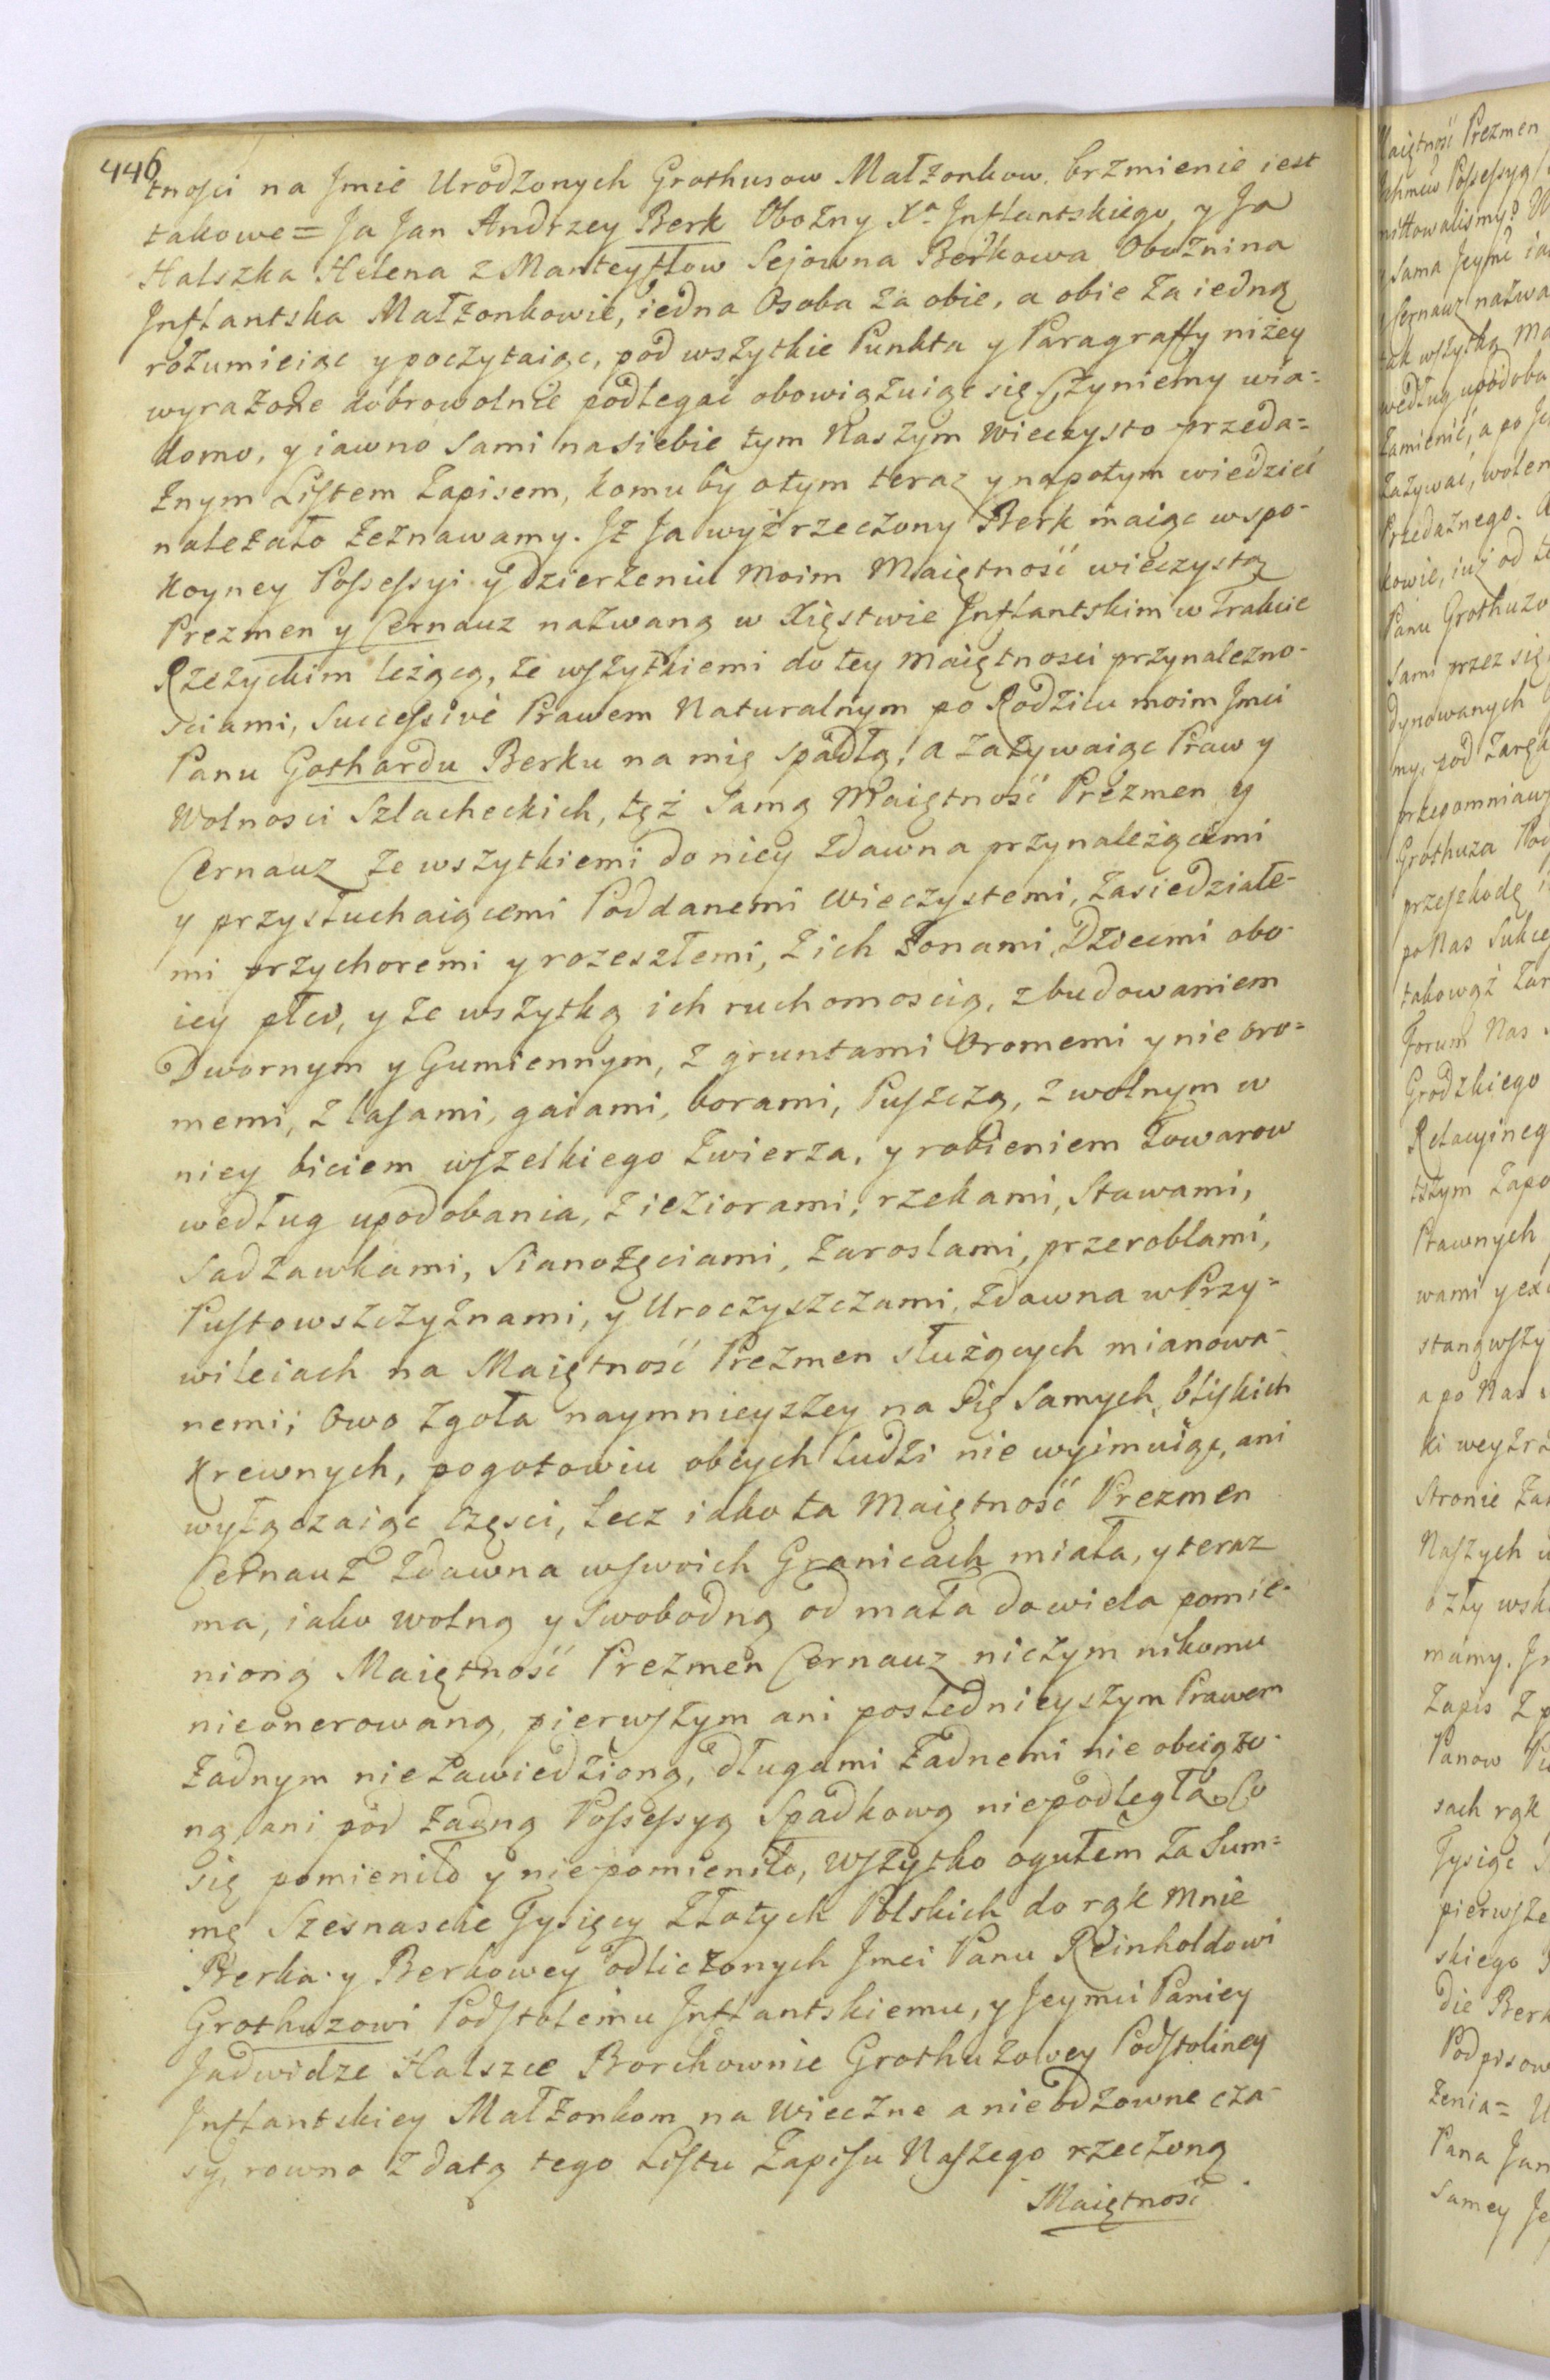 446
tnosci na Jmie Urodzonych Grothusow Małżonkow. brzmienie iest
takowe = Ja Jan Andrzey Berk Obożny Xa Jnflantskiego, y Ja
Halszka Helena z Manteyfflow Sejowna Berkowa Obożnina
Jnflantska Małżonkowie, iedna Osoba za obie, a obie za iedną
rozumieiąc y poczytaiąc, pod wszytkie Punkta y Paragraffy niżey
wyrażone dobrowolnie podlegać obowiązuiąc się Czyniemy wia-
domo, y iawno sami na siebie tym Naszym wieczysto przeda=
żnym Listem Zapisem, komu by o tym teraz y napotym wiedzieć
należało zeznawamy. Jż Ja wyż rzeczony Berk maiąc w spo-
koyney Possessyi y dzierzeniu moim Maiętność wieczystą
Prezmen y Cernauz nazwaną w Xięstwie Jnflantskim w Trakcie
Rzezyckim leżącą, ze wszytkiemi do tey maiętnosci przynalezno-
sciami, Successivè Prawem Naturalnym po Rodzicu moim Jmci
Panu Gothardu Berku na mię spadłą; a zażywaiąc Praw y
Wolnosci Szlacheckich, tęż samą Maiętność Prezmen y
Cernauz ze wszytkiemi do niey zdawna przynależącemi
y przysłuchaiącemi Poddanemi wieczystemi, zasiedziałe-
mi przychoremi y rozeszłemi, z ich żonami, Dziecmi obo-
iey płci, y ze wszytką ich ruchomoscią, z budowaniem
Dwornym y Gumiennym, z gruntami oromemi y nie oro=
memi, z lasami, gaiami, borami, Puszczą, z wolnym w
niey biciem wszelkiego zwierza, y robieniem Towarow
według upodobania, z ieziorami, rzekami, Stawami,
Sadzawkami, Sianożęciami, zaroslami, przeroblami,
Pustowszczyznami, y Uroczyszczami, zdawna w Przy=
wileiach na Maiętność Prezmen służących mianowa-
nemi; Owo zgoła naymnieyszey na Się samych, bliskich
Krewnych, pogotowiu obcych ludzi nie wyimuiąc, ani
wyłączaiąc części, Lecz iako ta Maiętność Prezmen
Cernauz zdawna w swoich Granicach miała, y teraz
ma, iako wolną y swobodną od mała do wiela pomie-
nioną Maiętność Prezmen Cernauz niczym nikomu
nieonerowaną, pierwszym ani poslednieyszym Prawem
żadnym nie zawiedzioną, długami żadnemi nie obciążo-
ną, ani pod żadną Possessyą Spadkową niepodległą Co
się pomieniło y niepomieniło, wszytko ogułem za Sum=
mę Szesnascie Tysięcy Złotych Polskich do rąk mnie
Berka y Berkowey odliczonych Jmci Panu Reinholdowi
Grothuzowi Podstolemu Jnflantskiemu, y Jeymci Paniey
Jadwidze Halszce Borchownie Grothuzowey Podstoliney
Jnflantskiey Małżonkom na wieczne a nieodzowne cza-
sy, rowno z datą tego Listu Zapisu Naszego rzeczoną
Maiętność